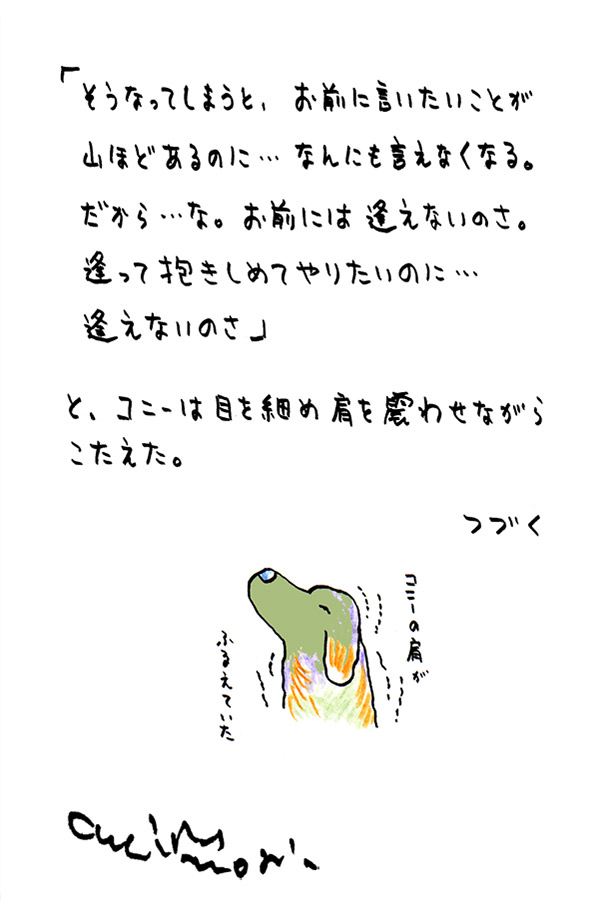 「そうなってしまうと、お前に言いたいことが
山ほどあるのに…なんにも言えなくなる。
だから…な。お前には逢えないのさ。
逢って抱きしめてやりたいのに…
逢えないのさ」
と、コニーは目を細め肩を震わせながら
こたえた。
つづく
コニーの肩が
ふるえていた